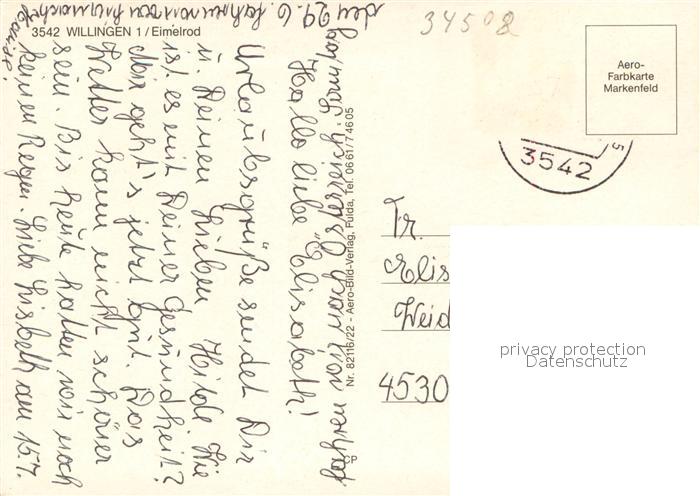 3542 WILLINGEN 1 / Eimelrod
34508
Aero-
Farbkarte
Markenfeld
3542
5
Hallo liebe Elisabeth!
Urlaubsgrüße sendet Dir
u. Deinen Lieben Hilde. Wie
ist es mit Deiner Gesundheit?
Mir geht's jetzt gut. Das
Wetter kann nicht schöner
sein. Bis heute hatten wir noch
keinen Regen. Liebe Lisbeth am 15.7.
fahren wir nach Österreich
den 29.6.
Nr. 82116/22 - Aero-Bild-Verlag, Fulda, Tel. 0661/74605
CP
Fr.
Elis
Weid
4530
privacy protection
Datenschutz